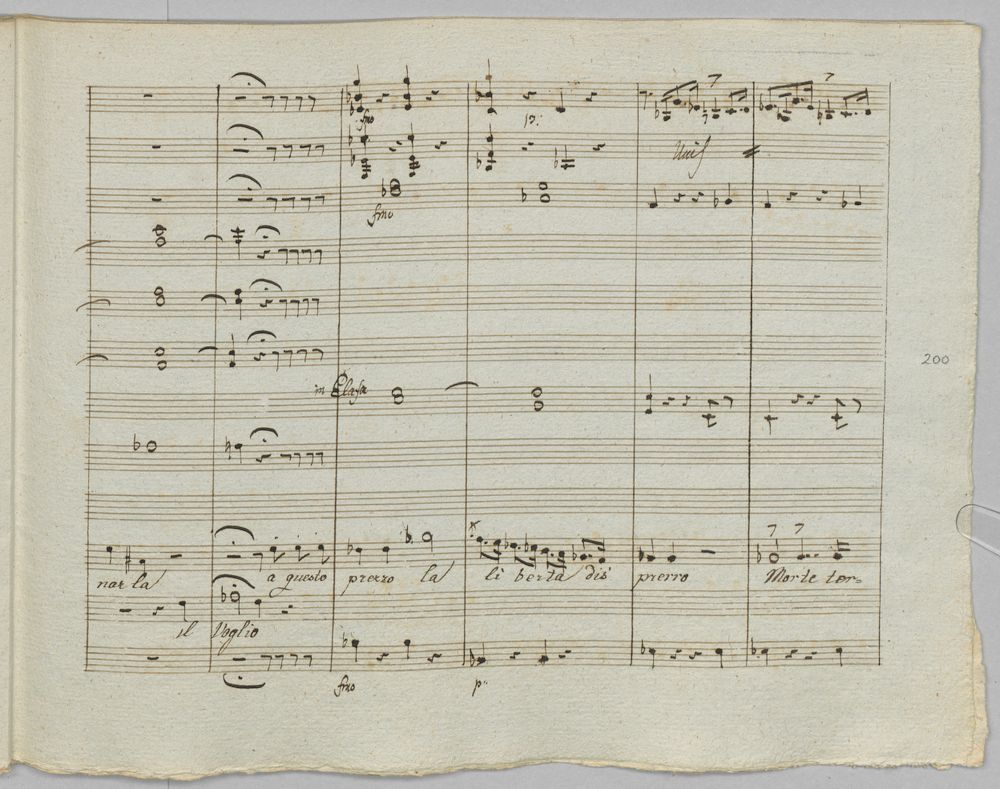 fmo
p:
Unis
fmo
200
in Elafa
nar la a questo prezzo la li berta dis prezzo Morte ter=
il Voglio
fmo p: